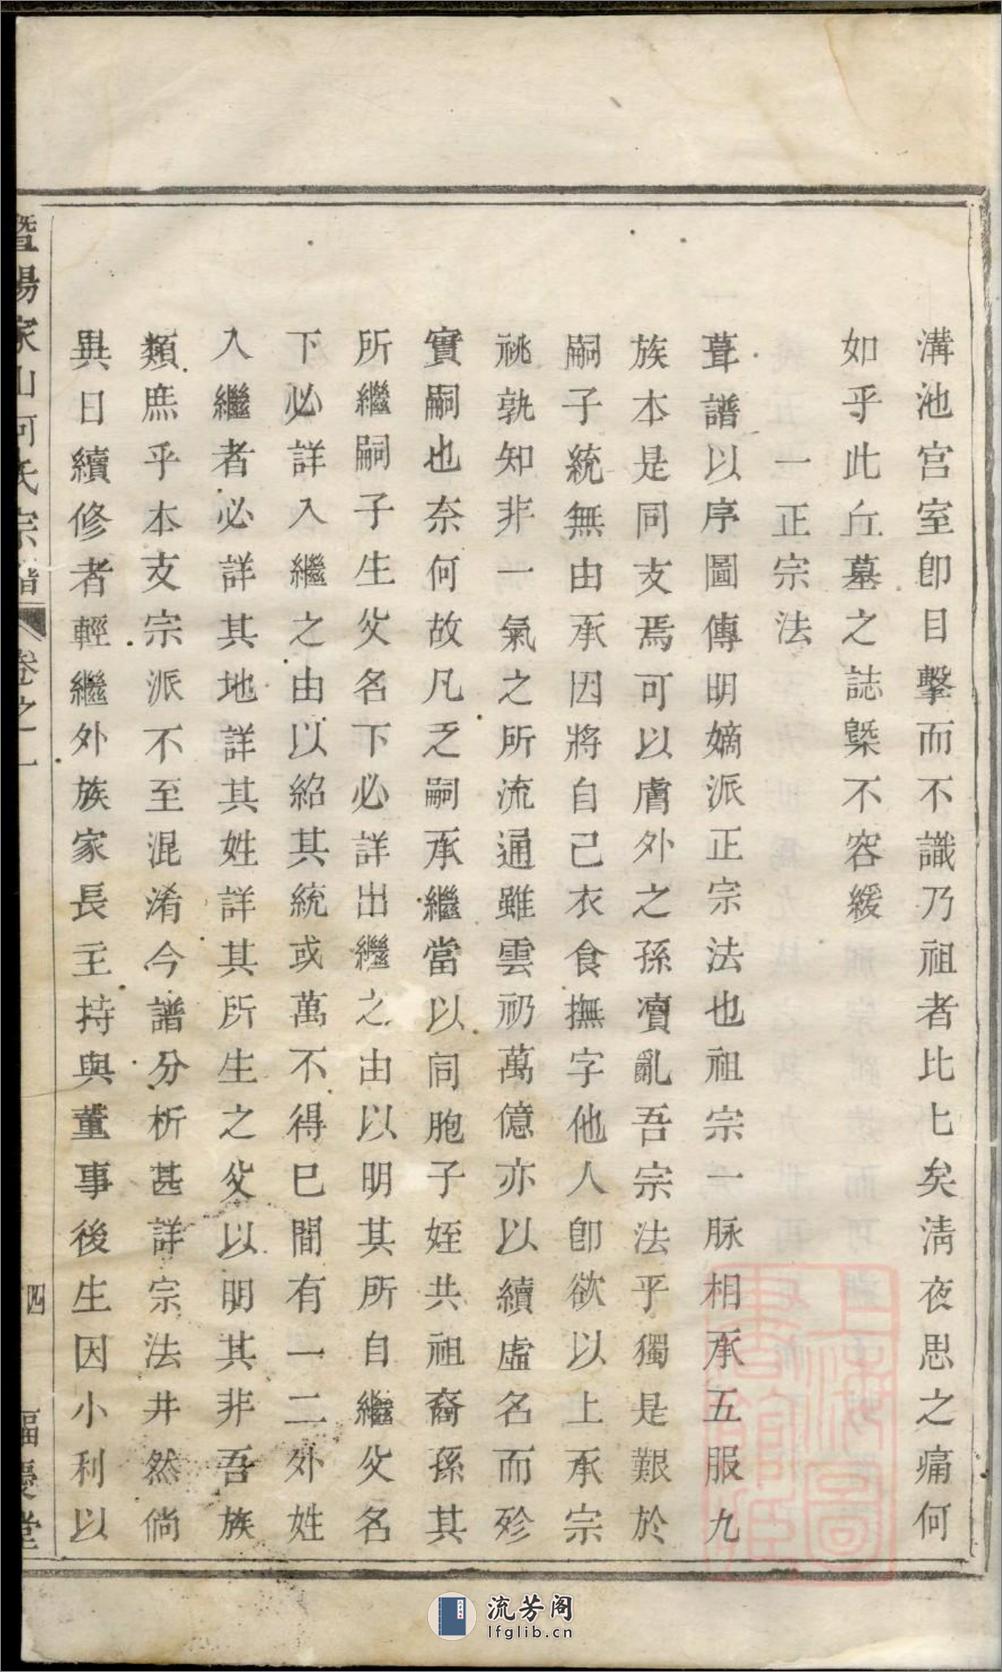 溝池宮室卽目擊而不識乃祖者比比矣淸夜思之痛何
如乎此丘墓之誌槩不容緩
一正宗法
葺譜以序圖傳明嫡派正宗法也祖宗一脉相承五服九
族本是同支焉可以膚外之孫瀆亂吾宗法乎獨是艱於
嗣子統無由承因將自己衣食撫字他人卽欲以上承宗
祧孰知非一氣之所流通雖雲礽萬億亦以續虛名而殄
實嗣也奈何故凡乏嗣承繼當以同胞子姪共祖裔孫其
所繼嗣子生父名下必詳出繼之由以明其所自繼父名
下必詳入繼之由以紹其統或萬不得巳間有一二外姓
入繼者必詳其地詳其姓詳其所生之父以明其非吾族
類庶乎本支宗派不至混淆今譜分析甚詳宗法井然倘
異日續修者輕繼外族家長主持與董事後生因小利以
暨陽家山何氏宗譜 卷之一 四 福慶堂
上海圖書館藏
流芳阁
lfglib.cn